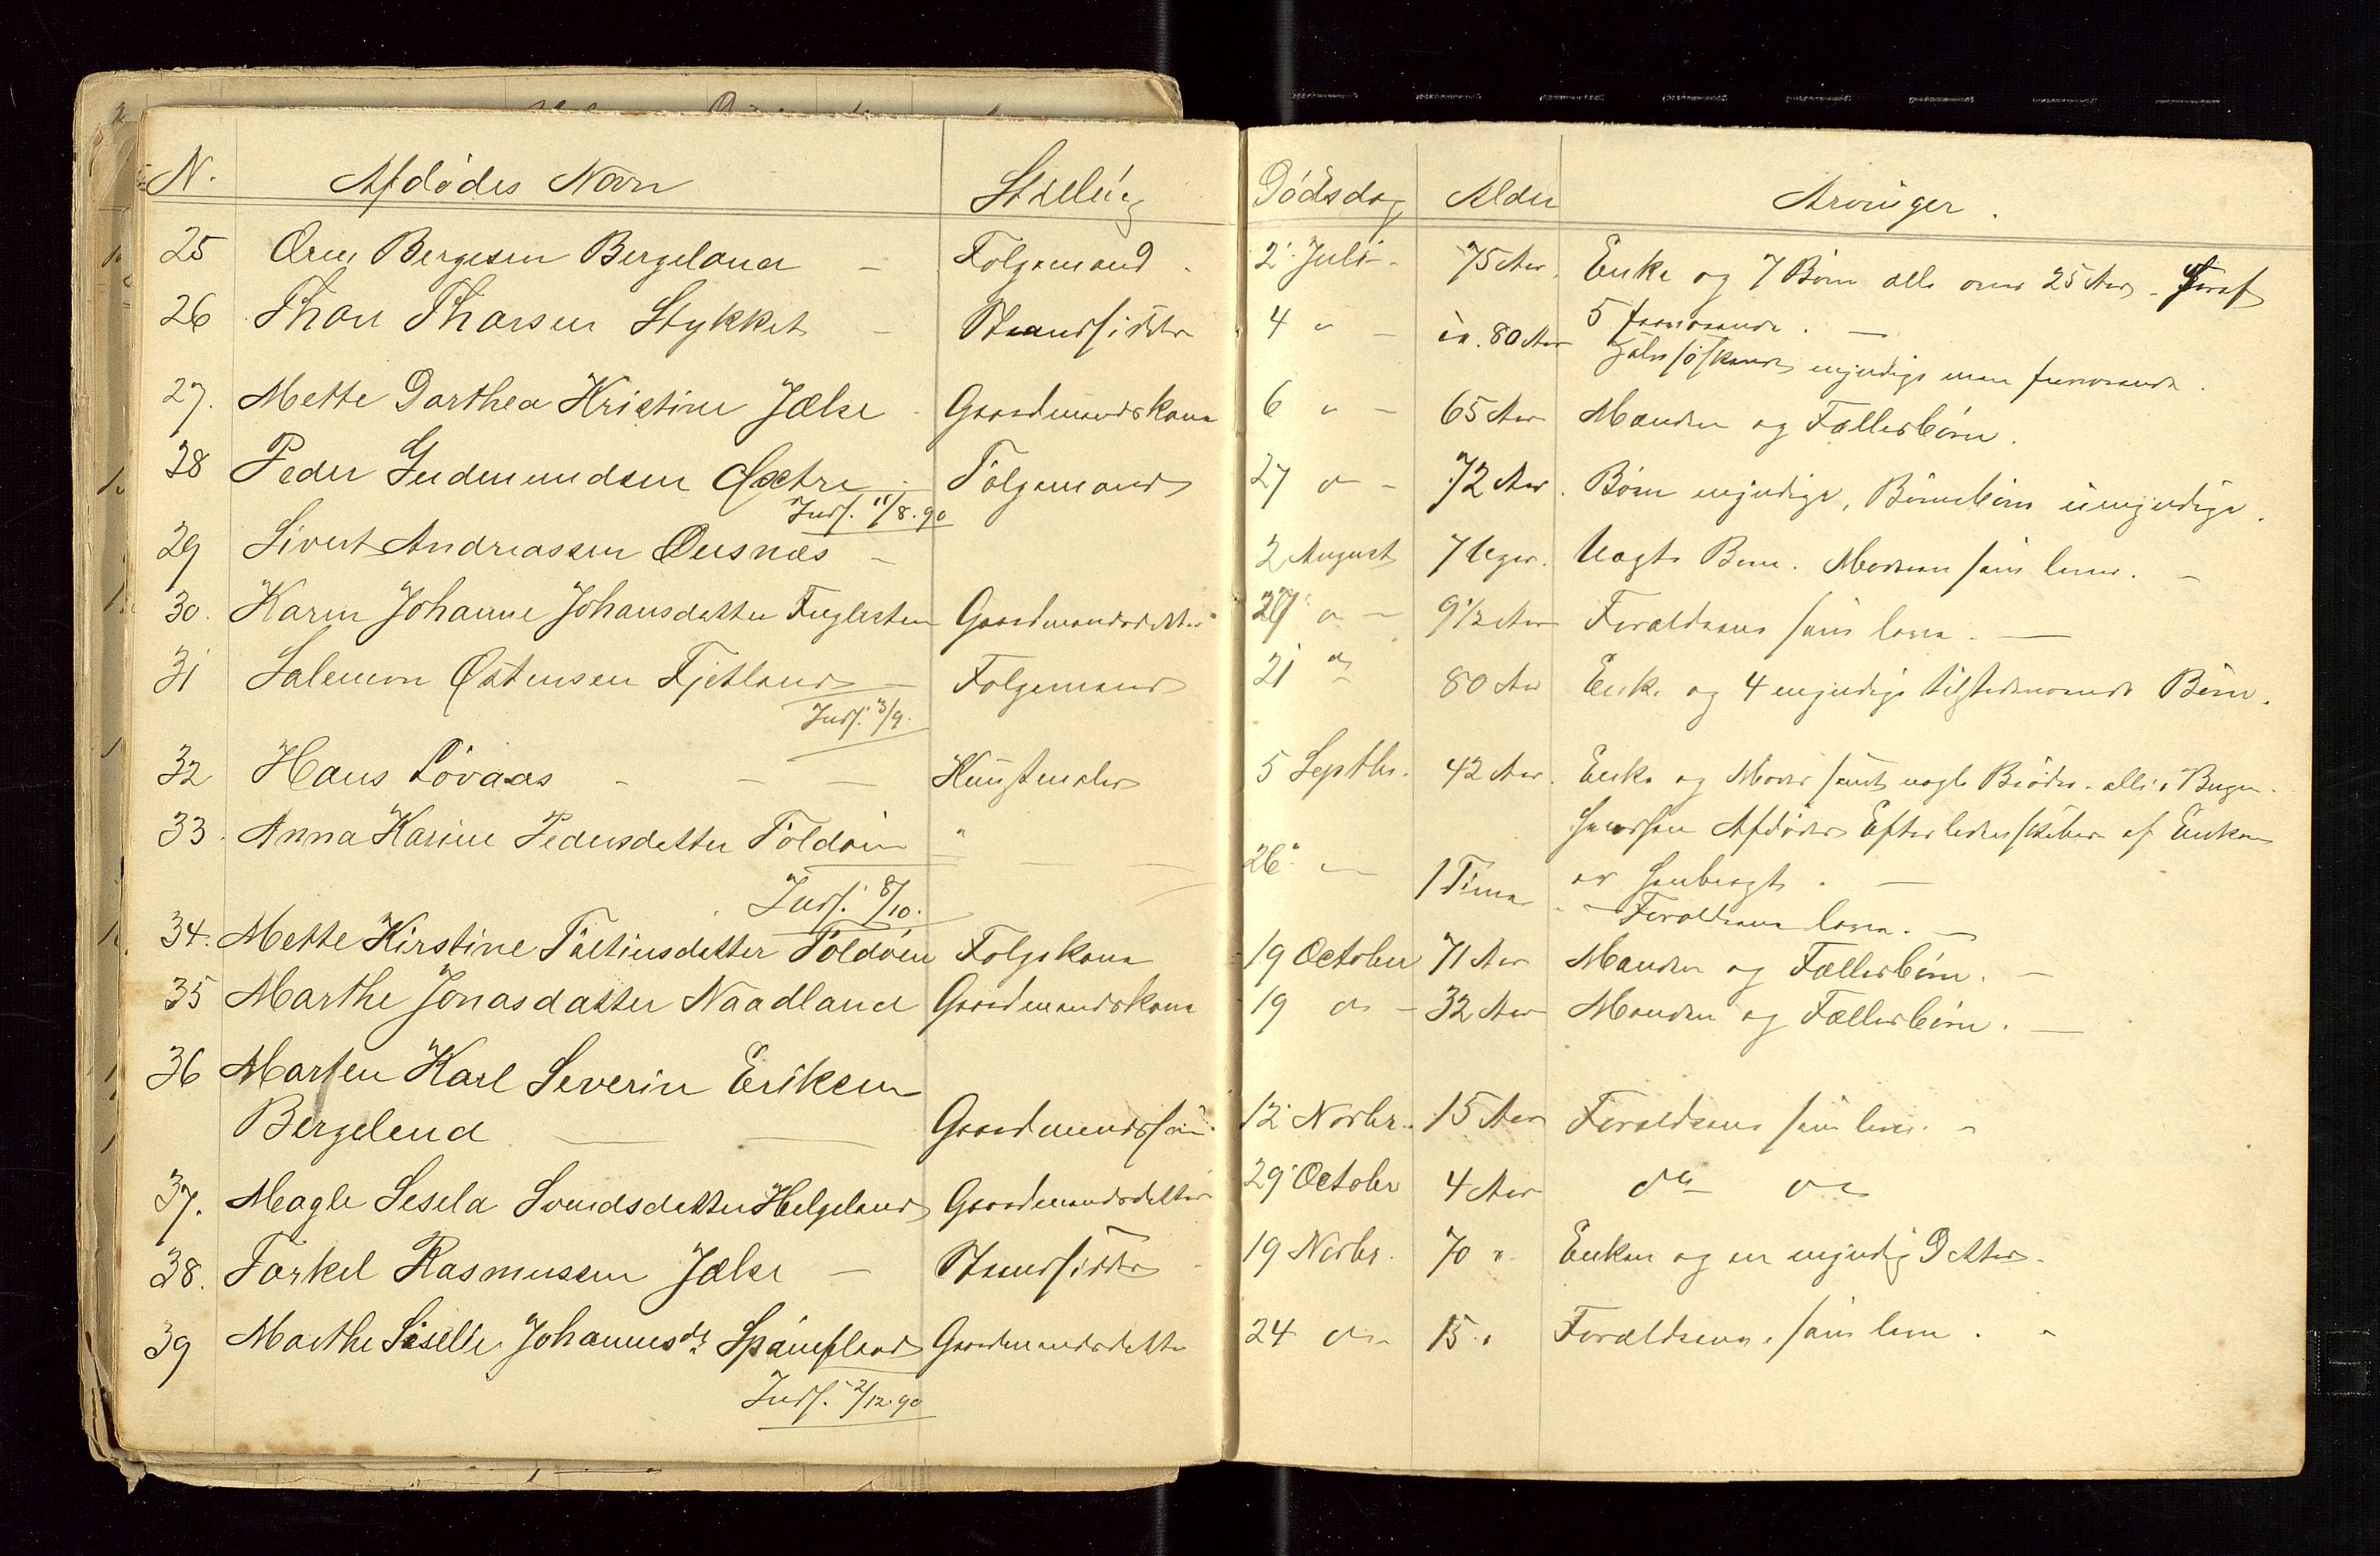 N. Afdødes Navn Stilling Dødsdag Alder Arvinger.
25 Orm Bergesen Bergeland - Folgemand. 2 Juli - 75 Aar. Enke og 7 Børn alle over 25 Aar - Heraf
5 fraværende. -
26 Thor Thorsen Stykket - Strandsidder 4 " - ca. 80 Aar Halvsøskende myndige men fraværende.
27. Mette Dorthea Kristine Jælse - Gaardmandskone 6 " - 65 Aar Manden og Fællesbørn.
28 Peder Gudmundsen Sætre - Folgemand 27 " - 72 Aar. Børn myndige, Børnebørn umyndige.
Indf. 11/8.90
29 Sivert Andreassen Ousnæs - 2 August 7 Uger. Uægte Barn. Moderen som lever. -
30. Karen Johanne Johansdatter Fuglesteen Gaardmandsdatter 27 " - 9 1/2 Aar Forældrene som leve. -
31 Salemon Østensen Fjetland - Folgemand 21 do 80 Aar Enke og 4 myndige tilstedeværende Børn.
Indf. 3/9.
32 Hans Løvaas - - - Kunstmaler 5 Septbr. 42 Aar. Enke og Moder samt nogle Brødre. alle i Bergen.
Afdødes Efterladenskaber af Enken
er
33. Anna Karine Pedersdatter Foldøen " - - - 26 " - 1 Time - Forældrene leve. -
Indf. 8/10.
34. Mette Kirstine Foldøen Folgekone 19 October 71 Aar Manden og Fællesbørn. -
35 Marthe Jonasdatter Naadland Gaardmandskone 19 do - 32 Aar Manden og Fællesbørn. -
36 Morten Karl Severin Eriksen
Bergeland - - Gaardmandssøn. 12 Novbr. 15 Aar Forældrene som leve. -
37. Magle Sesela Svendsdatter Helgeland Gaardmandsdatter 29 October 4 Aar do do
38. Torkel Rasmussen Jælse - Strandsidder - 19 Novbr. 70 " Enken og en myndig Datter.
39 Marthe Siselle Johannesdr Gaardmandsdatter 24 do - 15 " Forældrene som leve. -
Indf. 2/12.90